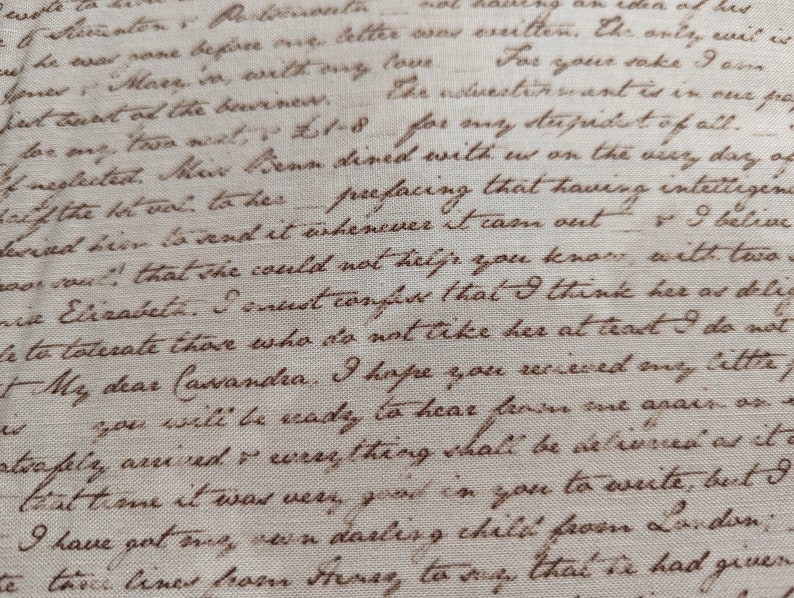 wrote to him not having an idea of his
Staunton & Portsmouth
he was gone before my letter was written. The only evil is
Jones & Mary so, with my love For your sake I am
just out of the business. The advertisement is in our pa
for my two next, & £1-8 for my stupidest of all.
f neglected. Miss Benn dined with us on the very day of
half the 1st vol. to her prefacing that having intelligen
desired him to send it whenever it cam out & I believe
poor soul! that she could not help you know, with two
Elizabeth. I must confess that I think her as delig
le to tolerate those who do not like her at least I do not
My dear Cassandra. I hope you recieved my little p
is you will be ready to hear from me again on
safely arrived & everything shall be delivered as it
that time it was very good in you to write, but I
I have got my own darling child from London;
three lines from Henry to say that he had given